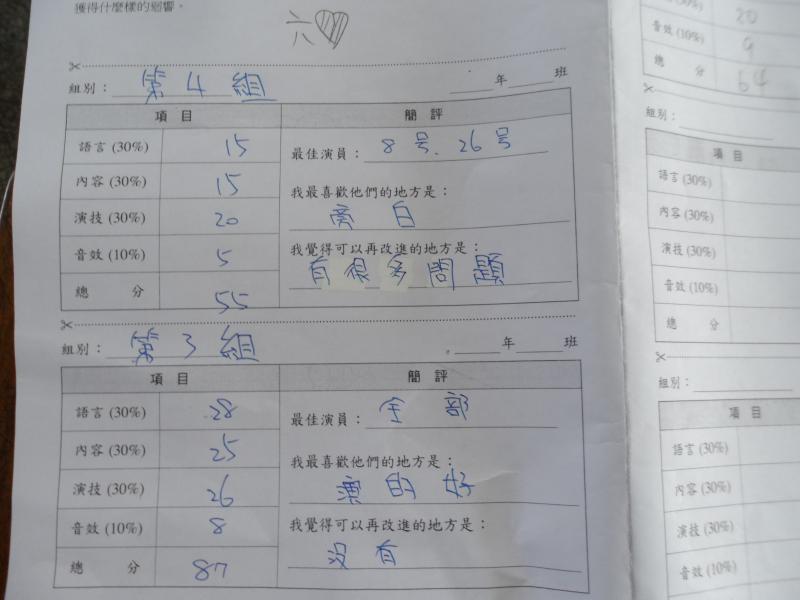 獲得什麼樣的迴響。
六
組別：第4組 ＿＿年＿＿班
項目 簡評
語言(30%) 15
最佳演員：8号、26号
內容(30%) 15
我最喜歡他們的地方是：
演技(30%) 20
旁白
音效(10%) 5
我覺得可以再改進的地方是：
有很多問題
總分 55
組別：第3組 ＿＿年＿＿班
項目 簡評
語言(30%) 28
最佳演員：全部
內容(30%) 25
我最喜歡他們的地方是：
演技(30%) 26
演的好
音效(10%) 8
我覺得可以再改進的地方是：
沒有
總分 87
(30%) 20
音效(10%) 9
總分 64
組別：
項目
語言(30%)
內容(30%)
演技(30%)
音效(10%)
總分
組別：
項目
語言(30%)
內容(30%)
演技(30%)
音效(10%)